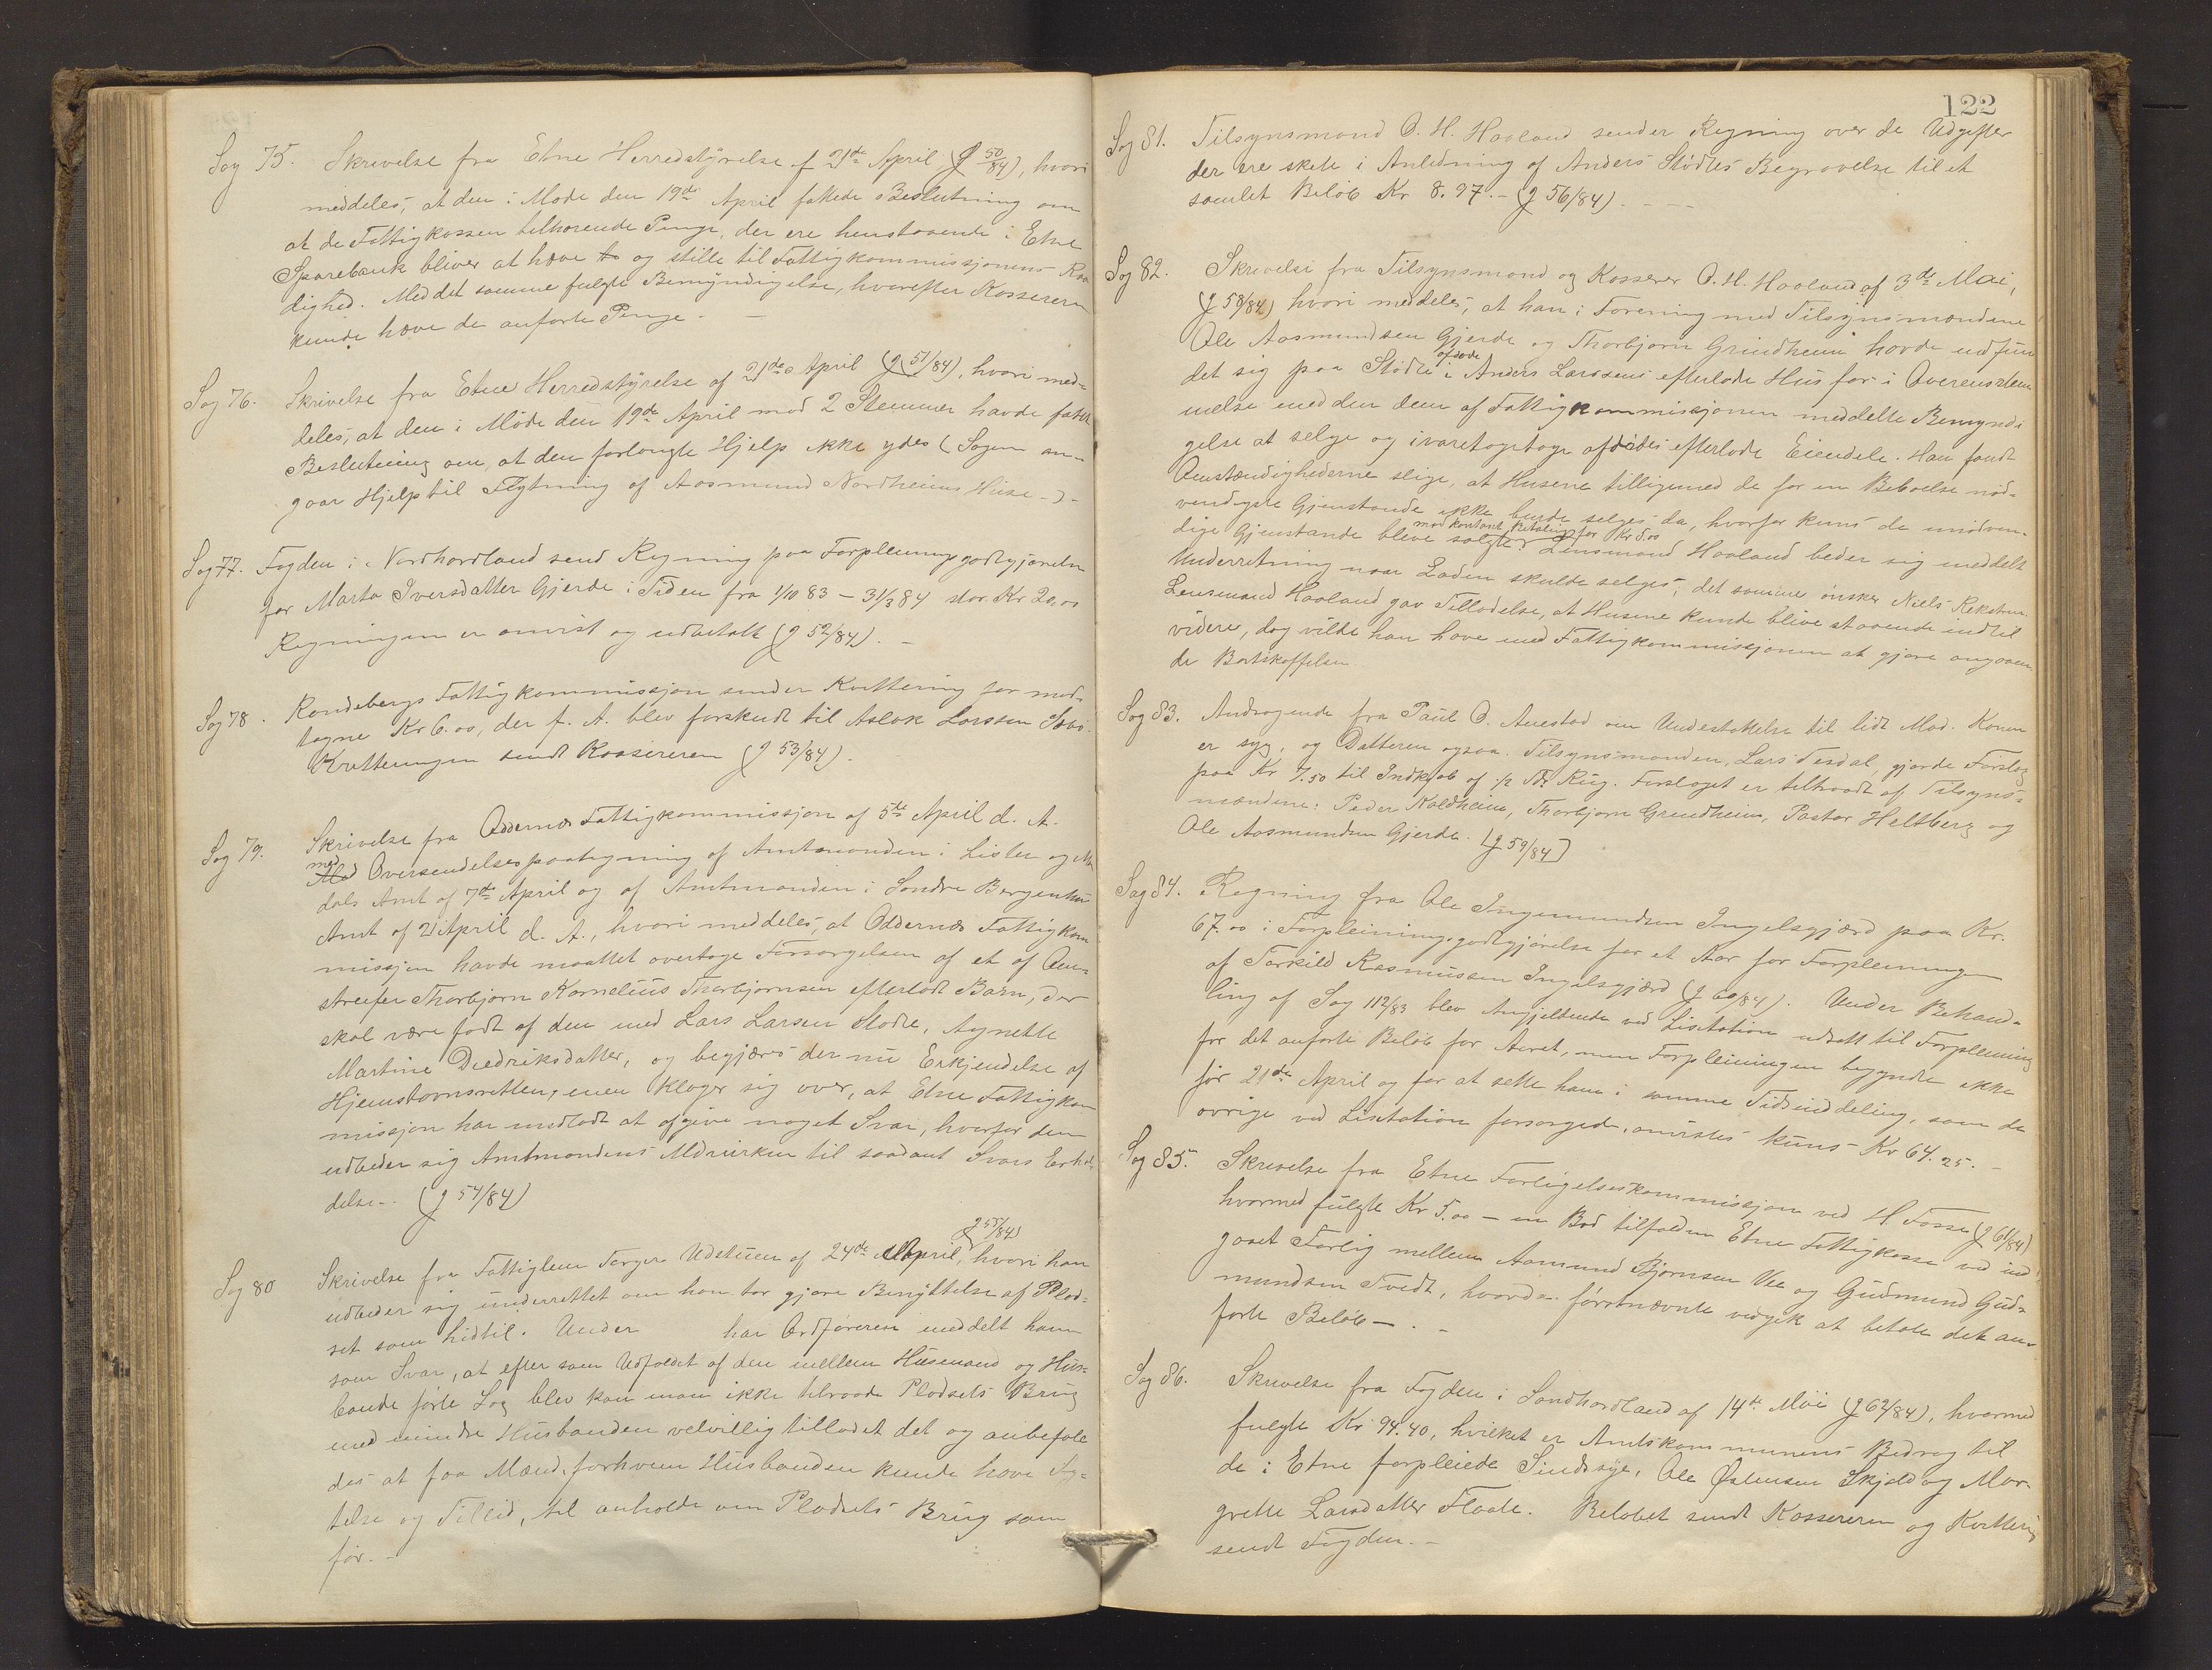 Sag 75. Skrivelse fra Etne Herredstyrelse af 21de April (J 50/84), hvori
meddeles, at den i Møde den 19de April fattede Beslutning om
at de Fattigkassen tilhørende Penge, der ere henstaaende i Etne
Sparebank bliver at hæve to og stille til Fattigkommissjonens Raa
dighed. Med det samme fulgte Bemyndigelse, hvorefter Kassereren
kunde hæve de anførte Penge. —
Sag 76. Skrivelse fra Etne Herredstyrelse af 21de April (J 51/84), hvori med-
deles, at den i Møde den 19de April mod 2 Stemmer havde fattet
Beslutning om, at den forlangte Hjelp ikke ydes (Sagen an-
gaar Hjelp til Flytning af Aasmund Nordheims Huse -) -
Sag 77. Fogden i Nordhordland send Regning paa Forpleiningsgodtgjørelse
for Marta Iversdatter Gjerde i Tiden fra 1/10 83 - 31/3 84 stor Kr 20,00
Regningen er anvist og udbetalt (J 52/84). -
Sag 78. Fattigkommissjon sender Kvittering for mod-
tagne Kr 6.00, der f. A. blev forskudt til Aslak Larssen
Kvitteringen sendt Kassereren (J 53/84).
Sag 79. Skrivelse fra Oddernæs Fattigkommissjon af 5te April d. A.
med
Med Oversendelsespaategning af Amtmanden i Lister og Man
dals Amt af 7de April og af Amtmanden i Søndre Bergenhus
Amt af 21 April d. A., hvori meddeles, at Oddernæs Fattigkom
missjon havde maattet overtage Forsørgelsen af et af Om-
streifer Thorbjørn Kornelius Thorbjørnsen efterladt Barn, der
skal være født af den med Lars Larsen Stødle, Agnette
Martine Diedriksdatter, og begjæres der nu Erkjendelse af
Hjemstavnsretten, men klager sig over, at Etne Fattigkom
missjon har undladt at afgive noget Svar, hvorfor den
udbeder sig Amtmandens Medvirken til saadant Svars Erhol
delse -. (J 54/84)
Sag 80 Skrivelse fra Fattiglem Torger Udstuen af 24de April, (J 55/84) hvori han
udbeder sig underrettet om han tør gjøre Benyttelse af Plad-
set som hidtil. Under har Ordføreren meddelt ham
som Svar, at efter som Udfaldet af den mellem Husmand og Hus-
bonde førte Sag blev kan man ikke tilraade Pladsets Brug
med mindre Husbonden velvillig tillodet det og anbefale
des at faa Mænd, forhvem Husbonden kunde have Ag-
telse og Tillid, til anholde om Pladsets Brug som
før. -
122
Sag 81. Tilsynsmand O. H. Haaland sender Regning over de Udgifter
der ere skete i Anledning af Anders Stødles Begravelse til et
samlet Beløb Kr 8.97. - (J 56/84). - - -
Sag 82. Skrivelse fra Tilsynsmand og Kasserer O. H. Haaland af 3de Mai,
(J 58/84) hvori meddeles, at han i Forening med Tilsynsmændene
Ole Aasmundsen Gjerde og Thorbjørn Grindheim havde indfun
det sig paa Stødle i afdøde Anders Larssens efterladte Hus for i Overensstem
melse med den dem af Fattigkommissjonen meddelte Bemyndi
gelse at selge og ivaretagetage afdødes efterladte Eiendele. Han fandt
Omstændighederne slige, at Husene tilligemed de for en Beboelse nød-
vendigste Gjenstande ikke burde selges da, hvorfor kuns de unødven-
mod kontant Betaling for Kr 5.00
dige Gjenstande bleve solgte. Lensmand Haaland beder sig meddelt
Underretning naar Laden skulde selges, det samme ønsker Niels
Lensmand Haaland gav Tilladelse, at Husene kunde blive staaende indtil
videre, dog vilde han have med Fattigkommissjonen at gjøre angaaen
de Bortskaffelsen.
Sag 83. Andragende fra Paul O. Auestad om Understøttelse til lidt Mad. Konen
er syg, og Datteren ogsaa. Tilsynsmanden, Lars Tesdal, gjorde Forslag
paa Kr 7.50 til Indkjøb af 1/2 Td Rug. Forslaget er tiltraadt af Tilsyns-
mændene: Peder Naldheim, Thorbjørn Grindheim, Pastor Heltberg og
Ole Aasmundsen Gjerde. [J 59/84]
Sag 84. Regning fra Ole Ingemundsen Ingelsgjærd paa Kr.
67.00 i Forpleiningsgodtgjørelse for et Aar for Forpleiningen
af Torkild Rasmussen Ingelsgjærd (J 60/84). Under Behand-
ling af Sag 112/83 blev Angjeldende ved Lisitation udsatt til Forpleining
for det anførte Beløb for Aaret, men Forpleiningen begyndte ikke
før 21de April og for at sette ham i samme Tidsinddeling, som de
øvrige ved Lisitation forsørgede, anvistes kuns Kr 64.25. -
Sag 85. Skrivelse fra Etne Forligelseskommissjon ved H Fosse (J 61/84)
hvormed fulgte Kr 5.00 - en Bod tilfalden Etne Fattigkasse ved ind
gaaet Forlig mellem Aamund Bjørnsen Vee og Gudmund Gud-
mundsen Tvedt, hvorda førstnævnte vedgik at betale det an-
førte Beløb - . -
Sag 86. Skrivelse fra Fogden i Søndhordland af 14de Mai (J 62/84), hvormed
fulgte Kr 94.40, hvilket er Amtskommunens Bidrag til
de i Etne forpleiede Sindssyge, Ole Østensen Skjold og Mar-
grette Larsdatter Flaate. Beløbet sendt Kassereren og Kvittering
sendt Fogden. -